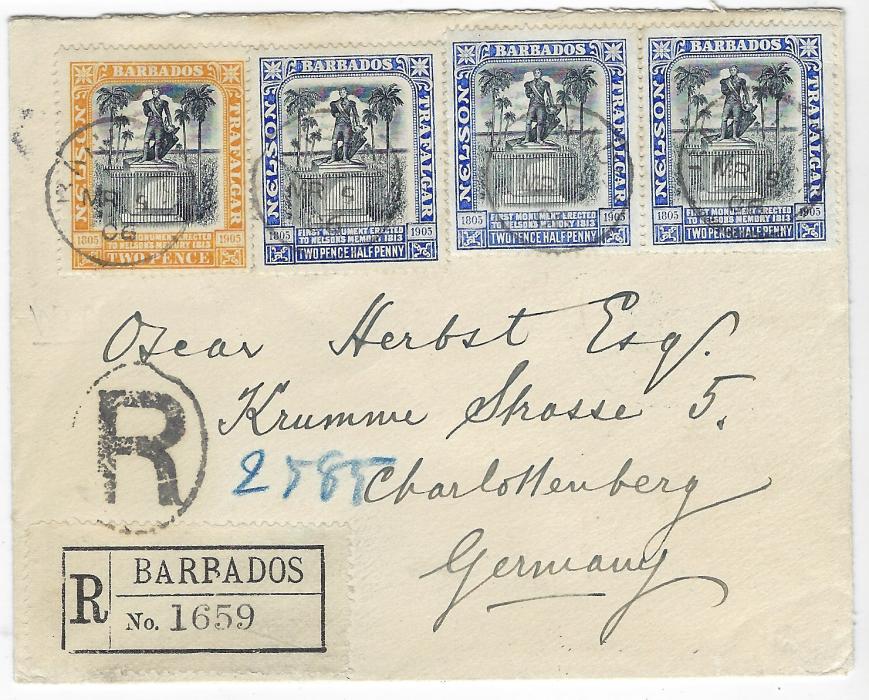 BARBADOS
NELSON
TRAFALGAR
1805
1905
FIRST MONUMENT ERECTED
TO NELSON'S MEMORY 1813
TWO PENCE
BARBADOS
NELSON
TRAFALGAR
1805
1905
FIRST MONUMENT ERECTED
TO NELSONS MEMORY 1813
TWO PENCE HALF PENNY
BARBADOS
NELSON
TRAFALGAR
1805
1905
FIRST MONUMENT ERECTED
TO NELSONS MEMORY 1813
TWO PENCE HALF PENNY
BARBADOS
NELSON
TRAFALGAR
1805
1905
FIRST MONUMENT ERECTED
TO NELSONS MEMORY 1813
TWO PENCE HALF PENNY
MR 9
06
MR 9
MR
MR 9
06
Oscar Herbst Esq.
Krumme Strasse 5.
R
2585
Charlottenberg
Germany
R
BARBADOS
No. 1659